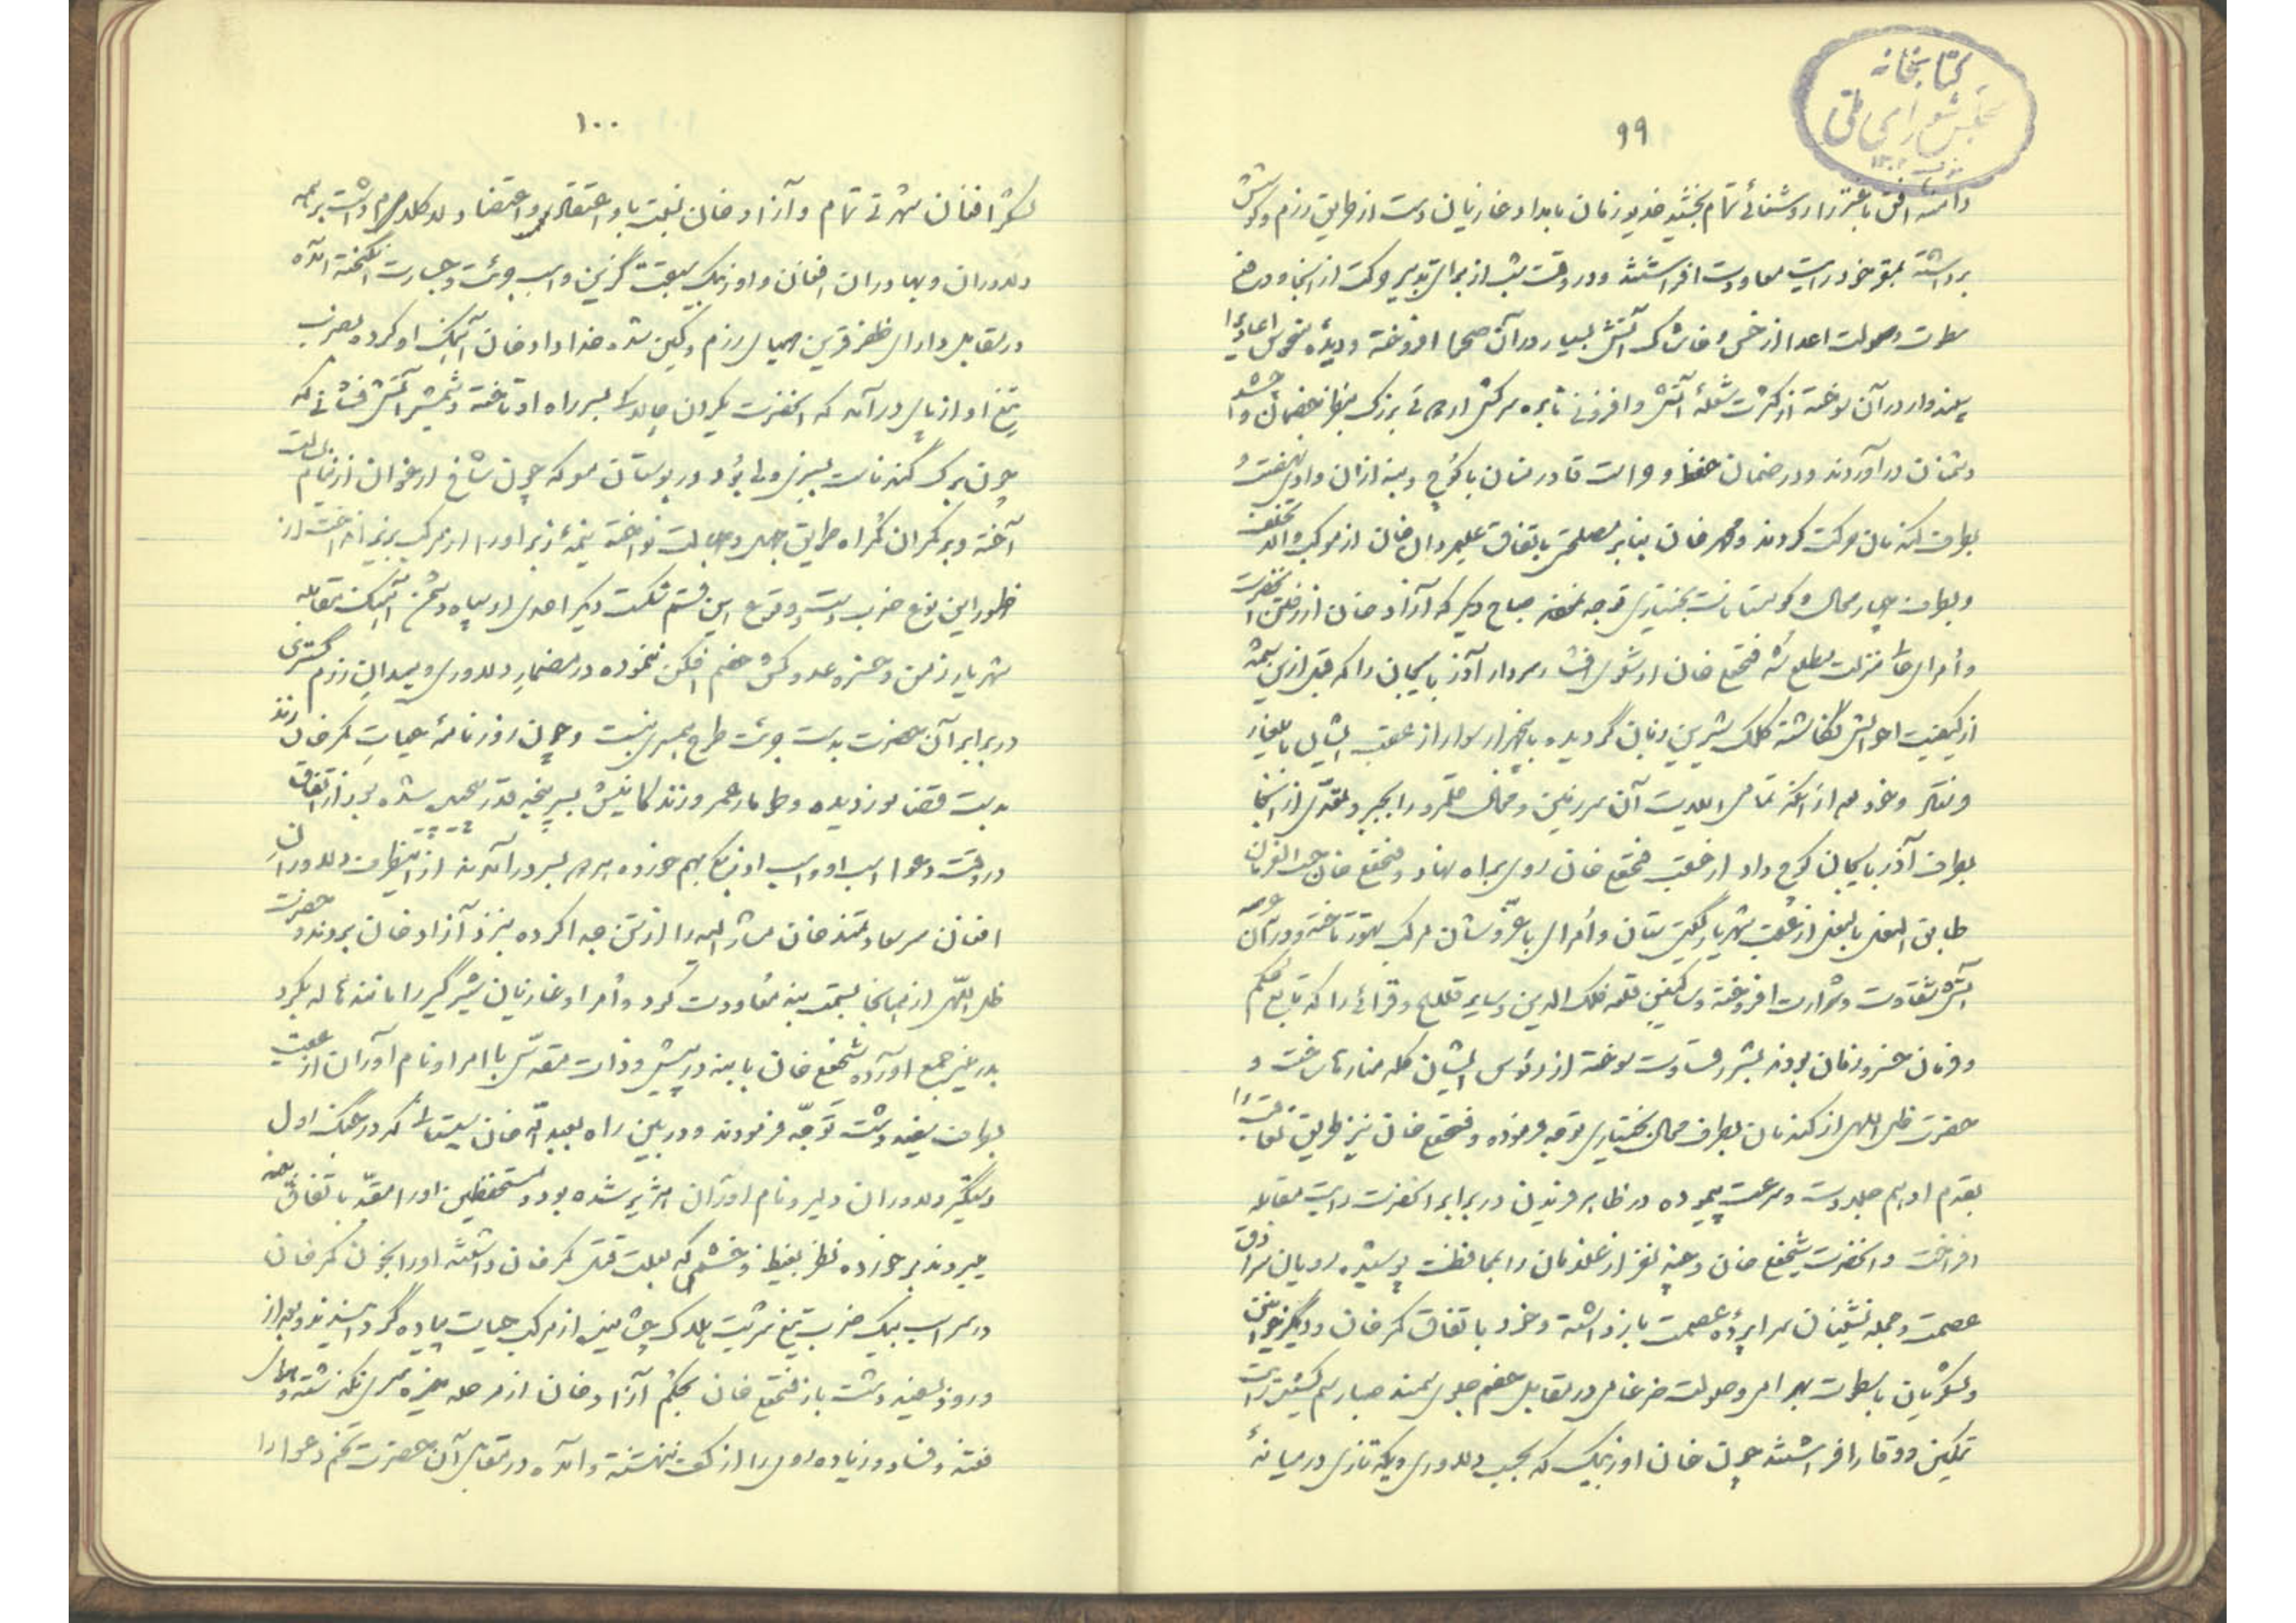 کتابخانه
مجلس شورای ملی
۹۹
دامنه افق باختر را روشنائی تمام بخشید خدیو زمان بامداد غازیان دست از طریق رزم و کوشش
برداشته بمقر خود رایت معاودت افراشتند و در وقت شب از برای تدبیر حرکت از آنجا و دفع
سطوت و صولت اعدا از خس و خاشاک آتش بسیار در آن صحرا افروخته و دیده نحوس اعادیرا
سپندوار در آن سوخته از کثرت شعلهٔ آتش و افزونی نایره سرکش اردوئی بزرک بنظر خصمان و
دشمنان درآوردند و در ضمان حفظ و حراست قادر منان با کوچ و بنه از آن وادی
بطرف کندمان حرکت کردند و محمد خان بنابر مصلحتی باتفاق علیمردان خان از موکب والا تخلف
و بطرف چهار محال و کوهستانات بختیاری توجه نمود صباح دیگر که آزاد خان از رفتن آنحضرت
و أمرای منزلت مطلع شد فتحعلی خان ارشوی افشار سردار آذربایجان را که قبل ازین شمهٔ
از کیفیت احوالش نگاشته کلک شیرین زبان گردیده با پنجهزار سوار از عقب ایشان بایلغار
و خود بعد از آنکه تمامی آن سرزمین و محال قلمرو را بجبر و تعدی از آنجا
بطرف آذربایجان کوچ داد از عقب فتحعلی خان روی براه نهاد و فتحعلی خان حسب الفرمان
طابق النعل بالنعل از عقب شهریار گیتی ستان و أمرای با عز و شان مرکب تهور تاخته و در آن عرصه
آتش شقاوت و شرارت افروخته و ساکنین قلعه فلک الدین و سایر قلاع و قرائی را که تابع حکم
و فرمان خسرو زمان بودند بشرر قساوت سوخته از رؤس ایشان کله منارها ساخت و
حضرت ظل اللهی از کندمان بطرف محال بختیاری توجه فرموده و فتحعلی خان نیز طریق تعاقب را
بقدم ادهم جلادت و سرعت پیموده در ظاهر فریدن در برابر آنحضرت رایت مقابله
افراخت و آنحضرت شیخعلی خان و چند نفر از غلامان را بمحافظت پوشیده رویان سرادق
عصمت و حجله نشینان سراپردهٔ عصمت باز داشته و خود باتفاق محمد خان و دیگر خوانین
و لشکریان با سطوت بهرامی و صولت ضرغامی در مقابل خصم جلوی سمند صبا رسم کشید رایت
تمکین و وقار افراشتند چون خان اوزبک که بحسب دلاوری و یکه تازی در میانهٔ
۱۰۰
لشکر افغان شهرتی تمام و آزاد خان نسبت باو اعتقادی و اعتضاد لاکلام داشت بر همه
دلاوران و بهادران افغان و اوزبک سبقت گزین و اسب جرئت و جسارت انگیخته آمده
در مقابل دارای ظفر قرین مهیای رزم و کین شد خداداد خان آهنک او کرده بضرب
تیغ او از پای درآمد که آنحضرت یکران چالاک بسر راه او تاخته و شمشیر آتش فشانی که
چون برک گندنا سبز ولی بود در بوستان معرکه چون شاخ ارغوان از نیام
آخته و بر کمر آن گمراه طریق جهل و جهالت نواخته نیمهٔ زبر او را از مرکب بزیر انداخت از
ظهور این نوع ضرب دست و وقوع این قسم شکست دیگر احدی از سپاه دشمن آهنک مقابله
شهریار زمن و خسرو عدو کش خصم افکن ننموده در مضمار دلاوری و میدان رزم گستری
در برابر آن حضرت بدست جرئت طرح همسری نبست و چون روزنامهٔ حیات محمد خان زند
بدست قضا نوردیده و طومار عمر و زندگانیش بسرپنجه قدر پیچیده شده بود از اتفاق
در وقت دعوا اسب او و اسب اوزبکی بهم خورده بسر درآمدند از این طرف دلاوران
افغان سر سعادتمند خان مشار الیه را از تن جدا کرده بنزد آزاد خان بردند و حضرت
ظل اللهی از همانجا بسمت بنه معاودت کرد و أمرا و غازیان شیرگیر را مانند هاله بگرد
بدر منیر جمع آورده شیخعلی خان با بنه در پیش و ذات مقدس با امرا و نام آوران از عقب
بطرف سفید دشت توجه فرمودند و در بین راه بعبدالله خان سیستانی که در جنک اول
دستگیر دلاوران دلیر و نام آوران هژبر شده بود و مستحفظین او را مقید باتفاق بنه
میبردند برخورده نظر بغیظ و خشمی که بعلت قتل محمد خان داشته او را بخون محمد خان
در سر اسب بیک ضرب تیغ شربت هلاک چشانیده از مرکب حیات پیاده گردانیدند و بعد از
ورود بسفید دشت باز فتحعلی خان بحکم آزاد خان از مرحله خیره سری نگذشته و
فتنه و فساد و زیاده روی را از کف ننهشته و آمده در مقابل آن حضرت تخم دعوا را